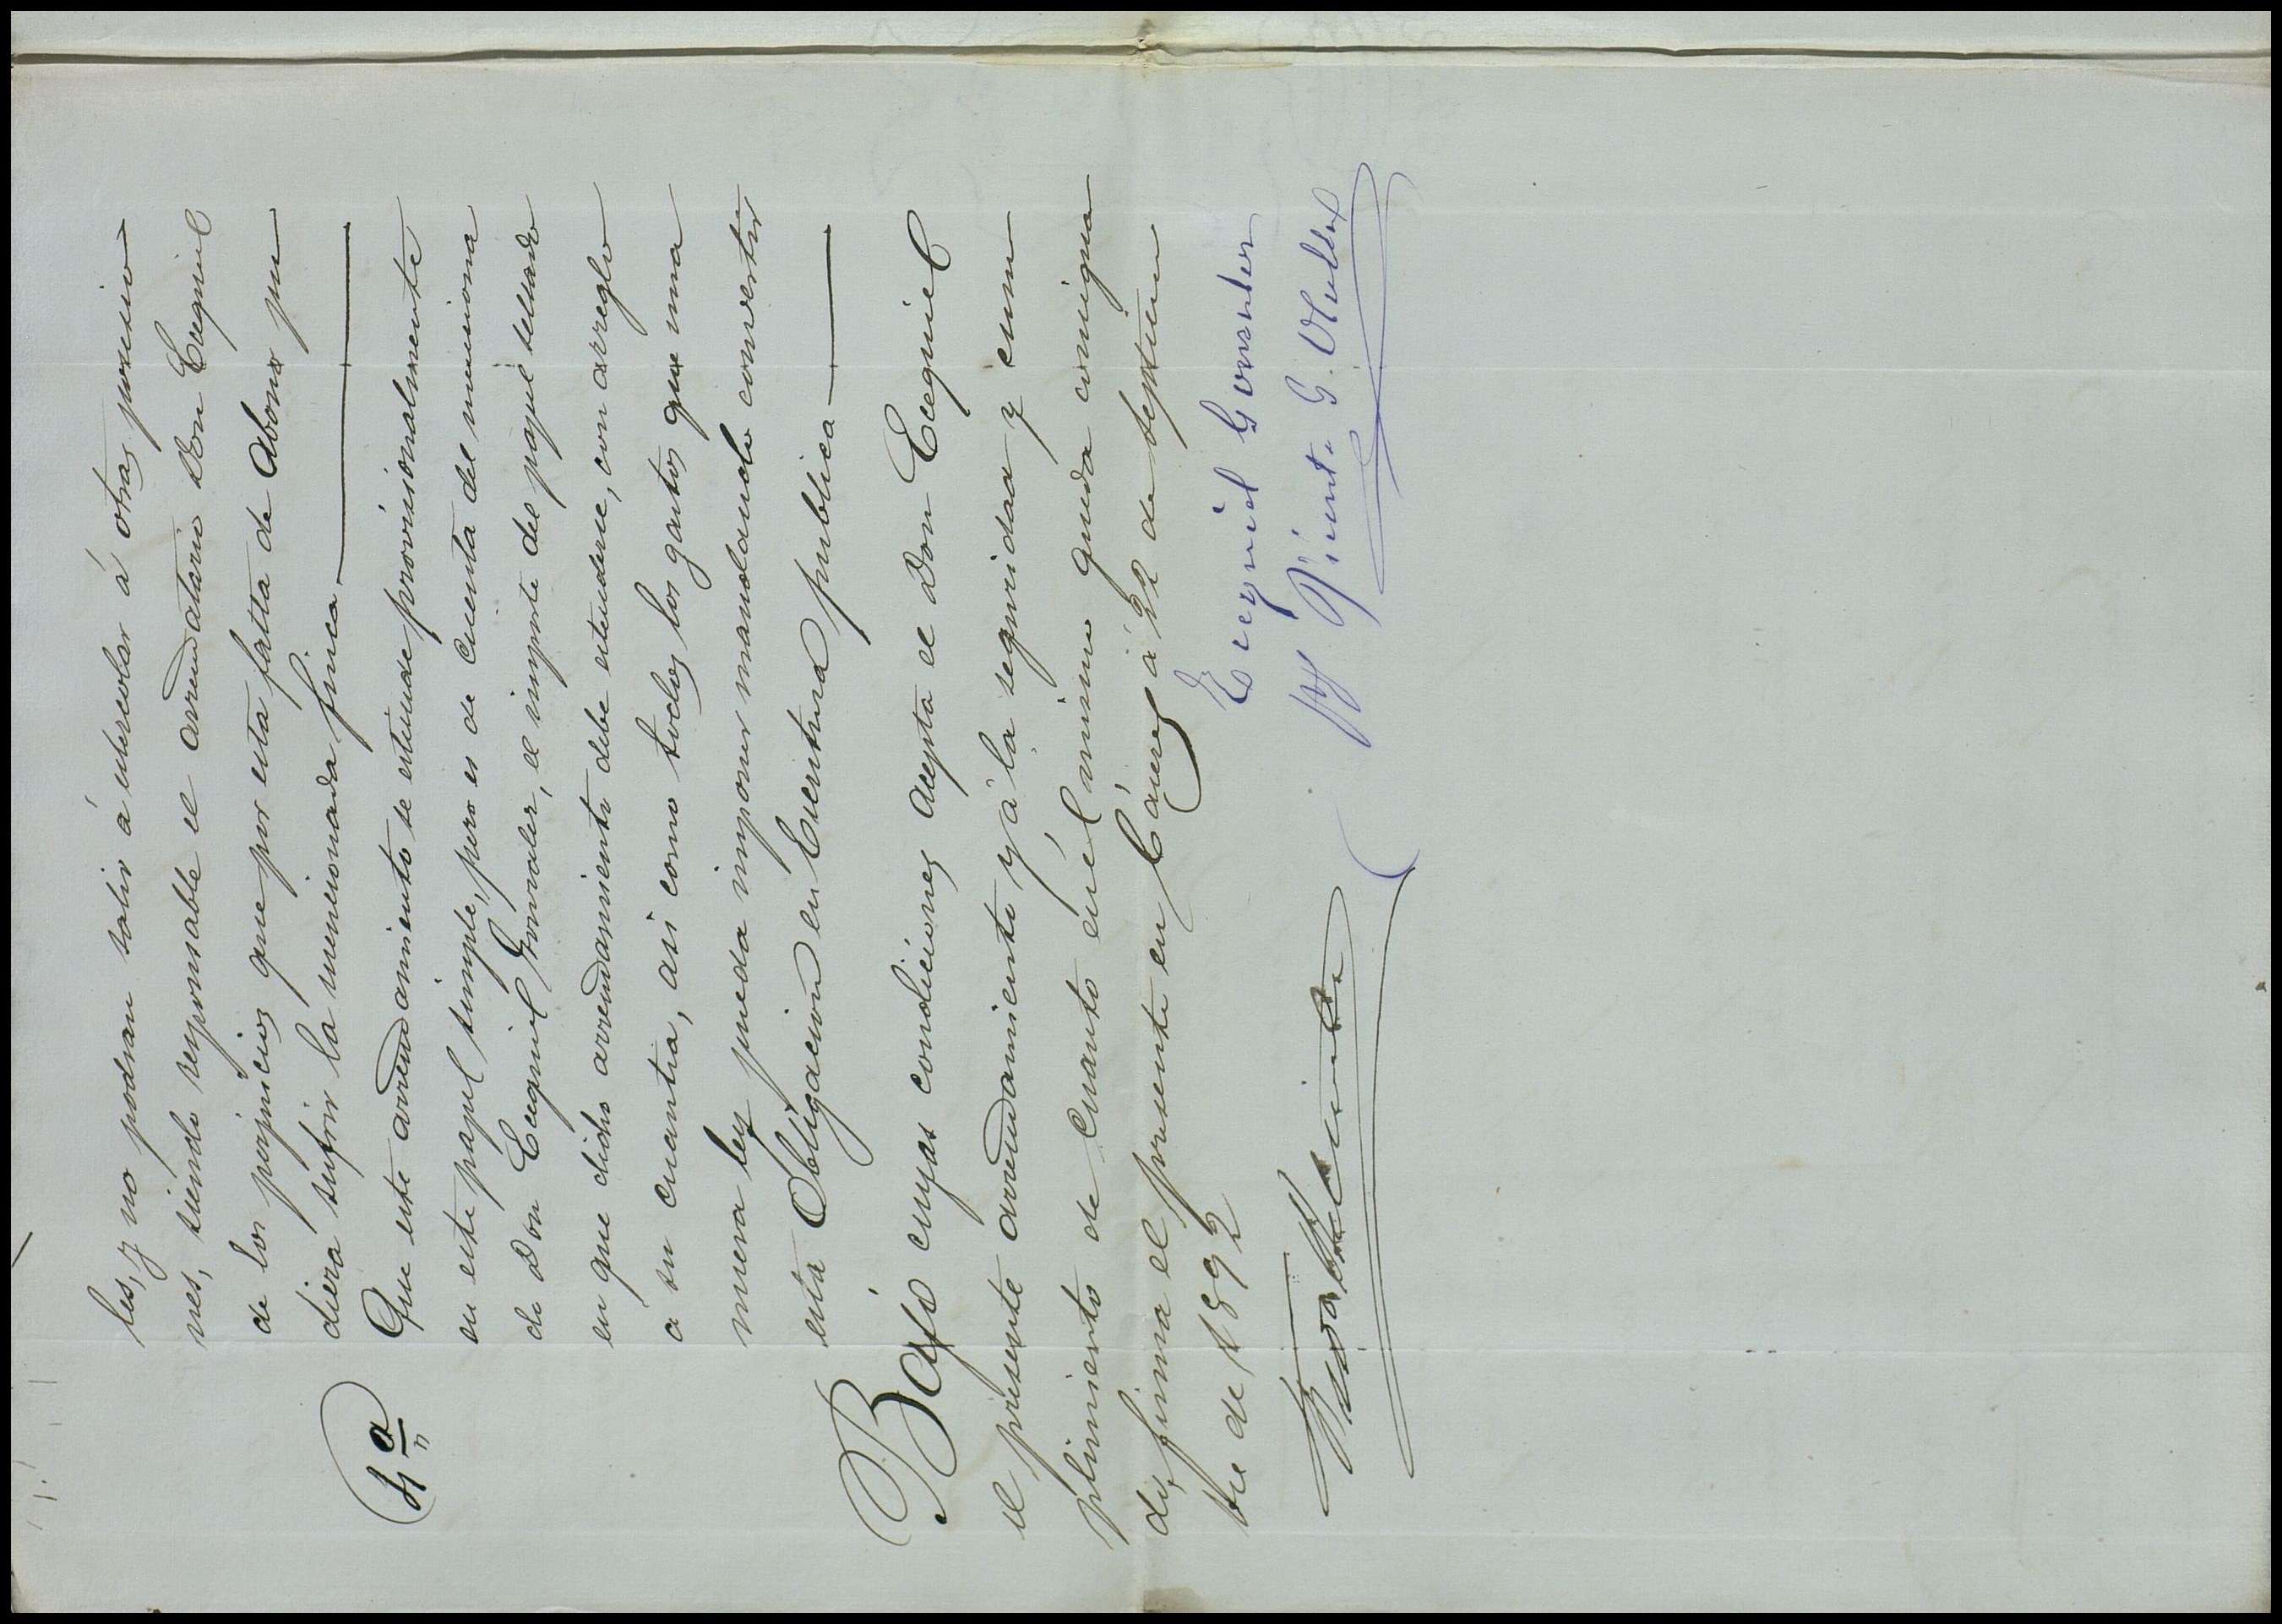 les, y no podran salir á estercolar á otras posesio
nes, siendo responsable el arrendatario Don Ecequiel
de los perjuicios que por esta falta de Abono pu
diera sufrir la mencionada finca
4ª Que este arrendamiento se estiende provisionalmente
en este papel simple, pero es de cuenta del menciona
do Don Ecequiel Gonzalez, el importe del papel sellado
en que dicho arrendamiento debe estenderse, con arreglo
a su cuantia, asi como todos los gastos que una
nueva ley pueda imponer mandando convertir
esta Obligacion en Escritura publica
Bajo cuyas condiciones acepta el Don Ecequiel
el presente arrendamiento y á la seguridad y cum
plimiento de cuanto en él mismo queda consigna
do, firma el presente en Cáceres á 22 de Septiem
bre de 1892
Ecequiel Gonzalez